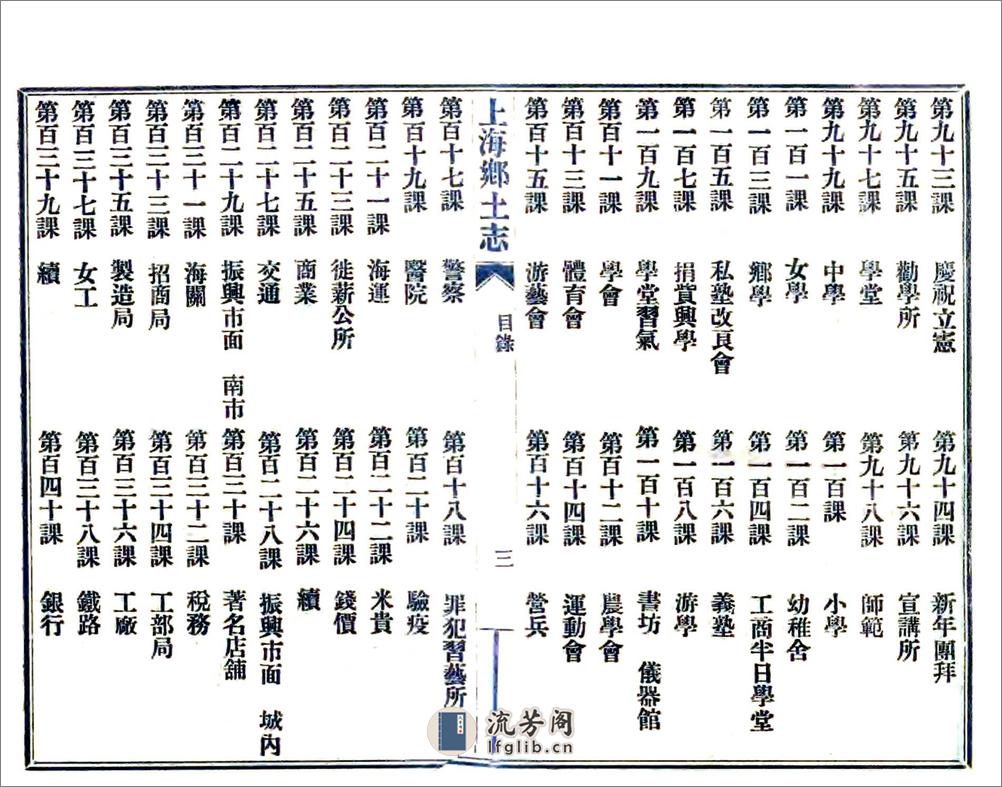 第九十三課　慶祝立憲　第九十四課　新年團拜
第九十五課　勸學所　第九十六課　宣講所
第九十七課　學堂　第九十八課　師範
第九十九課　中學　第一百課　小學
第一百一課　女學　第一百二課　幼稚舍
第一百三課　鄉學　第一百四課　工商半日學堂
第一百五課　私塾改良會　第一百六課　義塾
第一百七課　捐貲興學　第一百八課　游學
第一百九課　學堂習氣　第一百十課　書坊　儀器館
第百十一課　學會　第百十二課　農學會
第百十三課　體育會　第百十四課　運動會
第百十五課　游藝會　第百十六課　營兵
上海鄉土志　目錄　三
第百十七課　警察　第百十八課　罪犯習藝所
第百十九課　醫院　第百二十課　驗疫
第百二十一課　海運　第百二十二課　米貴
第百二十三課　徙薪公所　第百二十四課　錢價
第百二十五課　商業　第百二十六課　續
第百二十七課　交通　第百二十八課　振興市面　城內
第百二十九課　振興市面　南市　第百三十課　著名店舖
第百三十一課　海關　第百三十二課　稅務
第百三十三課　招商局　第百三十四課　工部局
第百三十五課　製造局　第百三十六課　工廠
第百三十七課　女工　第百三十八課　鐵路
第百三十九課　續　第百四十課　銀行
流芳阁
lfglib.cn